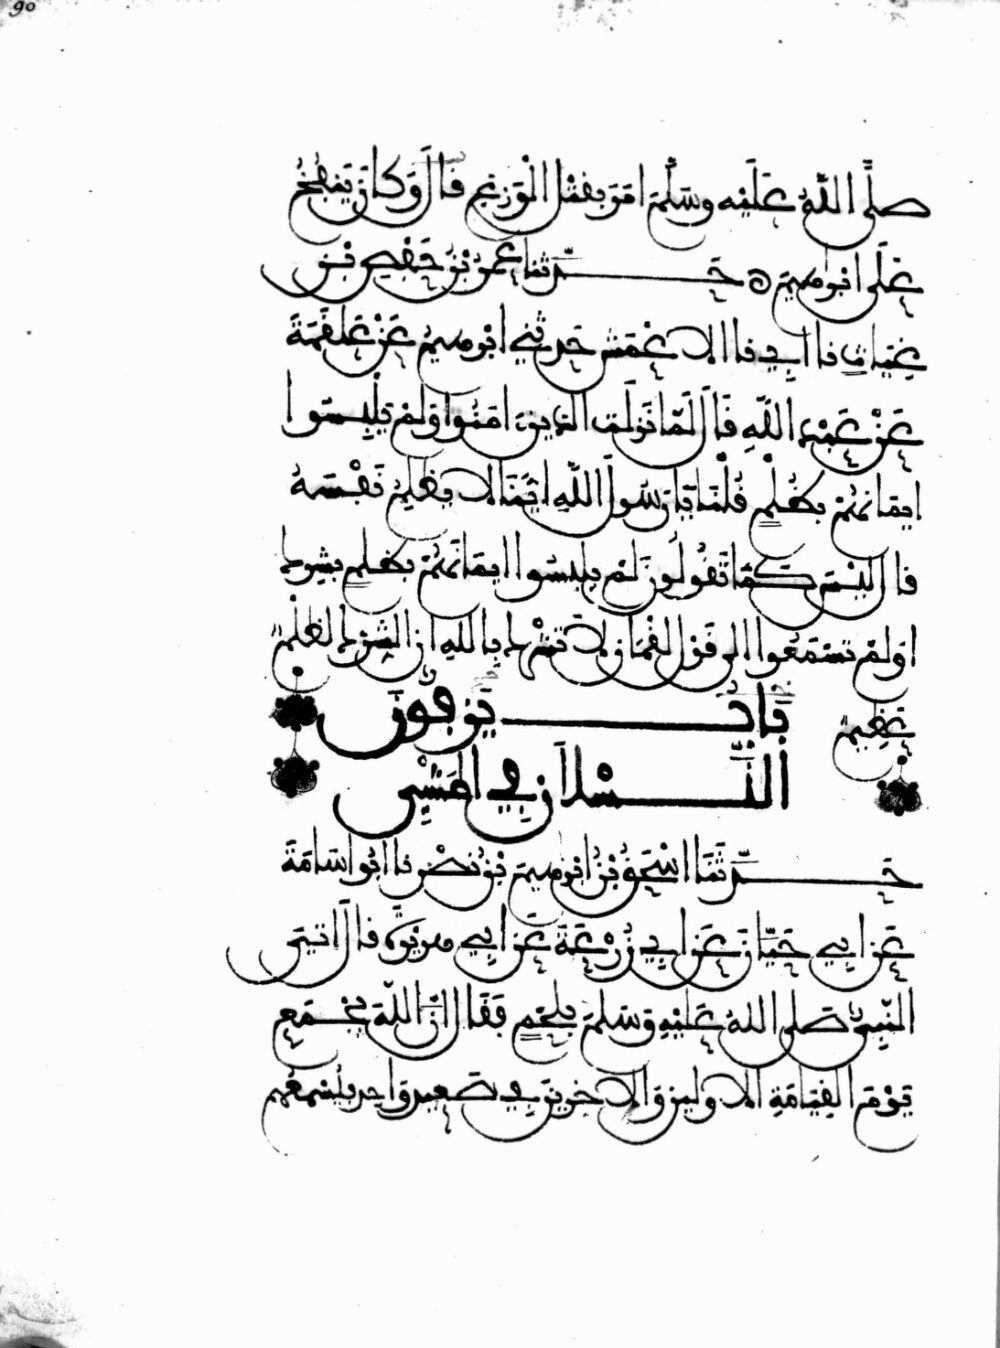 90
صَلَّى اللَّهُ عَلَيْهِ وَسَلَّمَ امَرَ بِقَتْلِ الْوَزَغِ قَالَ وَكَانَ يَنْفُخُ
عَلَى ابْرَاهِيمَ ه حَدَّثَنَا عُمَرُ بْنُ حَفْصِ بْنِ
غِيَاثٍ نا ابِي نا الاعْمَشُ حدثني ابْرَاهِيمُ عَنْ عَلْقَمَةَ
عَنْ عَبْدِ اللَّهِ قَالَ لَمَّا نَزَلَتِ الذين ءامَنُوا وَلَمْ يَلْبِسُوا
ايمَانَهُمْ بِظُلْمٍ قُلْنَا يَا رَسُولَ اللَّهِ ايُّنَا لا يَظْلِمُ نَفْسَهُ
قَالَ لَيْسَ كَمَا تَقُولُونَ لَمْ يلبِسُوا ايمَانَهُمْ بِظُلْمٍ بِشِرْكٍ
اوَلَمْ تَسْمَعُوا الى قَوْلِ لُقْمَانَ لا تُشْرِكْ بِاللَّهِ انَّ الشِّرْكَ لَظُلْمٌ
عَظِيمٌ بَابُ يَزِفُّونَ
النَّسَلانُ فِي الْمَشْيِ
حَدَّثَنَا اسْحَقُ بْنُ ابْرَاهِيمَ بْنِ نَصْرٍ نا ابُو اسَامَةَ
عَنْ ابِي حَيَّانَ عَنْ ابِي زُرْعَةَ عَنْ ابِي هُرَيْرَةَ قَالَ اتِيَ
النَّبِيُّ صَلَّى اللَّهُ عَلَيْهِ وَسَلَّمَ بِلَحْمٍ فَقَالَ انَّ اللَّهَ يَجْمَعُ
يَوْمَ الْقِيَامَةِ الاوَّلِينَ وَالاخِرِينَ فِي صَعِيدٍ وَاحِدٍ فَيُسْمِعُهُم